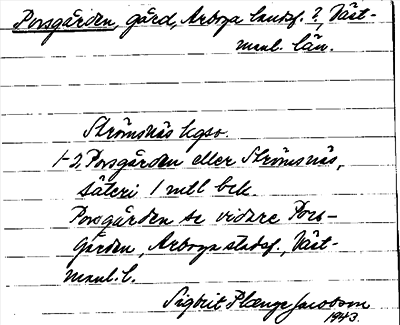 Porsgården, gård, Arboga landsf. ?, Väst-
manl. län.
Strömsnäs kgso.
1-2. Porsgården eller Strömsnäs,
säteri 1 mtl bek.
Porsgården se vidare Pors-
gården, Arboga stadsf., Väst-
manl. l.
Sigbrit Plænge Jacobson
1943.